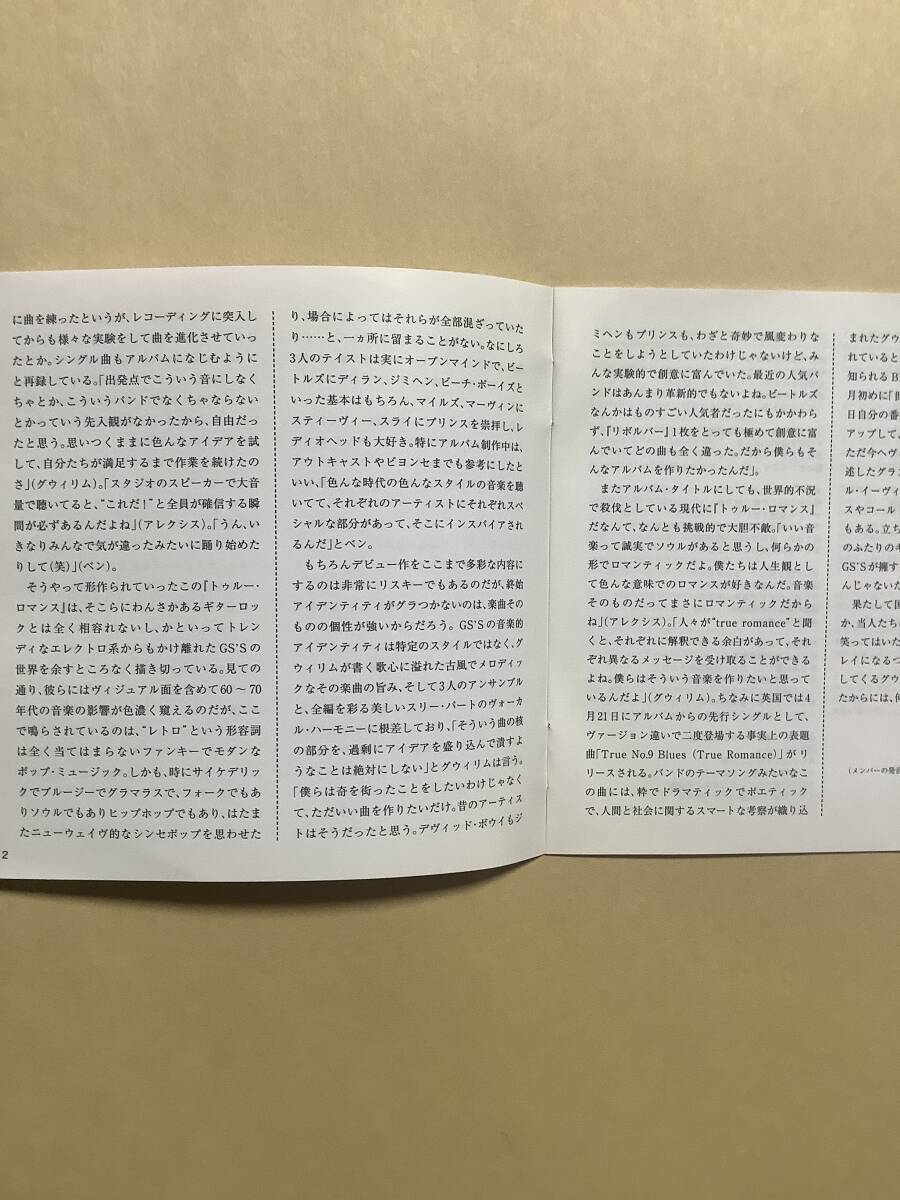 に曲を練ったというが、レコーディングに突入し
てからも様々な実験をして曲を進化させていっ
たとか。シングル曲もアルバムになじむように
と再録している。「出発点でこういう音にしなく
ちゃとか、こういうバンドでなくちゃならない
とかっていう先入観がなかったから、自由だっ
たと思う。思いつくままに色んなアイデアを試
して、自分たちが満足するまで作業を続けたの
さ」(グウィリム)。「スタジオのスピーカーで大音
量で聴いてると、“これだ！”と全員が確信する瞬
間が必ずあるんだよね」(アレクシス)。「うん、い
きなりみんなで気が違ったみたいに踊り始めた
りして(笑)」(ベン)。
そうやって形作られていったこの『トゥルー・
ロマンス』は、そこらにわんさかあるギターロッ
クとは全く相容れないし、かといってトレン
ディなエレクトロ系からもかけ離れたGS'Sの
世界を余すところなく描き切っている。見ての
通り、彼らにはヴィジュアル面を含めて60～70
年代の音楽の影響が色濃く窺えるのだが、ここ
で鳴らされているのは、“レトロ”という形容詞
は全く当てはまらないファンキーでモダンな
ポップ・ミュージック。しかも、時にサイケデリッ
クでブルージーでグラマラスで、フォークでもあ
りソウルでもありヒップホップでもあり、はたま
たニューウェイヴ的なシンセポップを思わせた
2
り、場合によってはそれらが全部混ざっていた
り……と、一ヵ所に留まることがない。なにしろ
3人のテイストは実にオープンマインドで、ビー
トルズにディラン、ジミヘン、ビーチ・ボーイズと
いった基本はもちろん、マイルズ、マーヴィンに
スティーヴィー、スライにプリンスを崇拝し、レ
ディオヘッドも大好き。特にアルバム制作中は、
アウトキャストやビヨンセまでも参考にしたと
いい、「色んな時代の色んなスタイルの音楽を聴
いてて、それぞれのアーティストにそれぞれスペ
シャルな部分があって、そこにインスパイアされ
るんだ」とベン。
もちろんデビュー作をここまで多彩な内容に
するのは非常にリスキーでもあるのだが、終始
アイデンティティがグラつかないのは、楽曲その
ものの個性が強いからだろう。GS'Sの音楽的
アイデンティティは特定のスタイルではなく、グ
ウィリムが書く歌心に溢れた古風でメロディッ
クなその楽曲の旨み、そして3人のアンサンブル
と、全編を彩る美しいスリー・パートのヴォーカ
ル・ハーモニーに根差しており、「そういう曲の核
の部分を、過剰にアイデアを盛り込んで潰すよ
うなことは絶対にしない」とグウィリムは言う。
「僕らは奇を衒ったことをしたいわけじゃなく
て、ただいい曲を作りたいだけ。昔のアーティス
トはそうだったと思う。デヴィッド・ボウイもジ
ミヘンもプリンスも、わざと奇妙で風変わりな
ことをしようとしていたわけじゃないけど、み
んな実験的で創意に富んでいた。最近の人気バ
ンドはあんまり革新的でもないよね。ビートルズ
なんかはものすごい人気者だったにもかかわら
ず、『リボルバー』1枚をとっても極めて創意に富
んでいてどの曲も全く違った。だから僕らもそ
んなアルバムを作りたかったんだ」。
またアルバム・タイトルにしても、世界的不況
で殺伐としている現代に『トゥルー・ロマンス』
だなんて、なんとも挑戦的で大胆不敵。「いい音
楽って誠実でソウルがあると思うし、何らかの
形でロマンティックだよ。僕たちは人生観とし
て色んな意味でのロマンスが好きなんだ。音楽
そのものだってまさにロマンティックだから
ね」(アレクシス)。「人々が“true romance”と聞
くと、それぞれに解釈できる余白があって、それ
ぞれ異なるメッセージを受け取ることができる
よね。僕らはそういう音楽を作りたいと思って
いるんだよ」(グウィリム)。ちなみに英国では4
月21日にアルバムからの先行シングルとして、
ヴァージョン違いで二度登場する事実上の表題
曲「True No.9 Blues (True Romance)」がリ
リースされる。バンドのテーマソングみたいなこ
の曲には、粋でドラマティックでポエティック
で、人間と社会に関するスマートな考察が織り込
まれたグウ
れていると
知られるB
月初めに「世
日自分の番
アップして、
ただ今へヴ
述したグラス
ル・イーヴィ
スやコール
もある。立ち
のふたりのギ
GS'Sが擁す
んじゃないた
果たして国
か、当人たち
笑ってはいた
レイになるつ
してくるグウ
たからには、何
(メンバーの発言